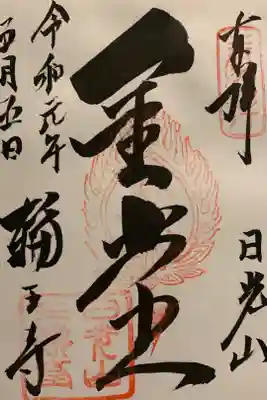 奉拝
日光山
金堂
令和元年
五月五日
輪王寺